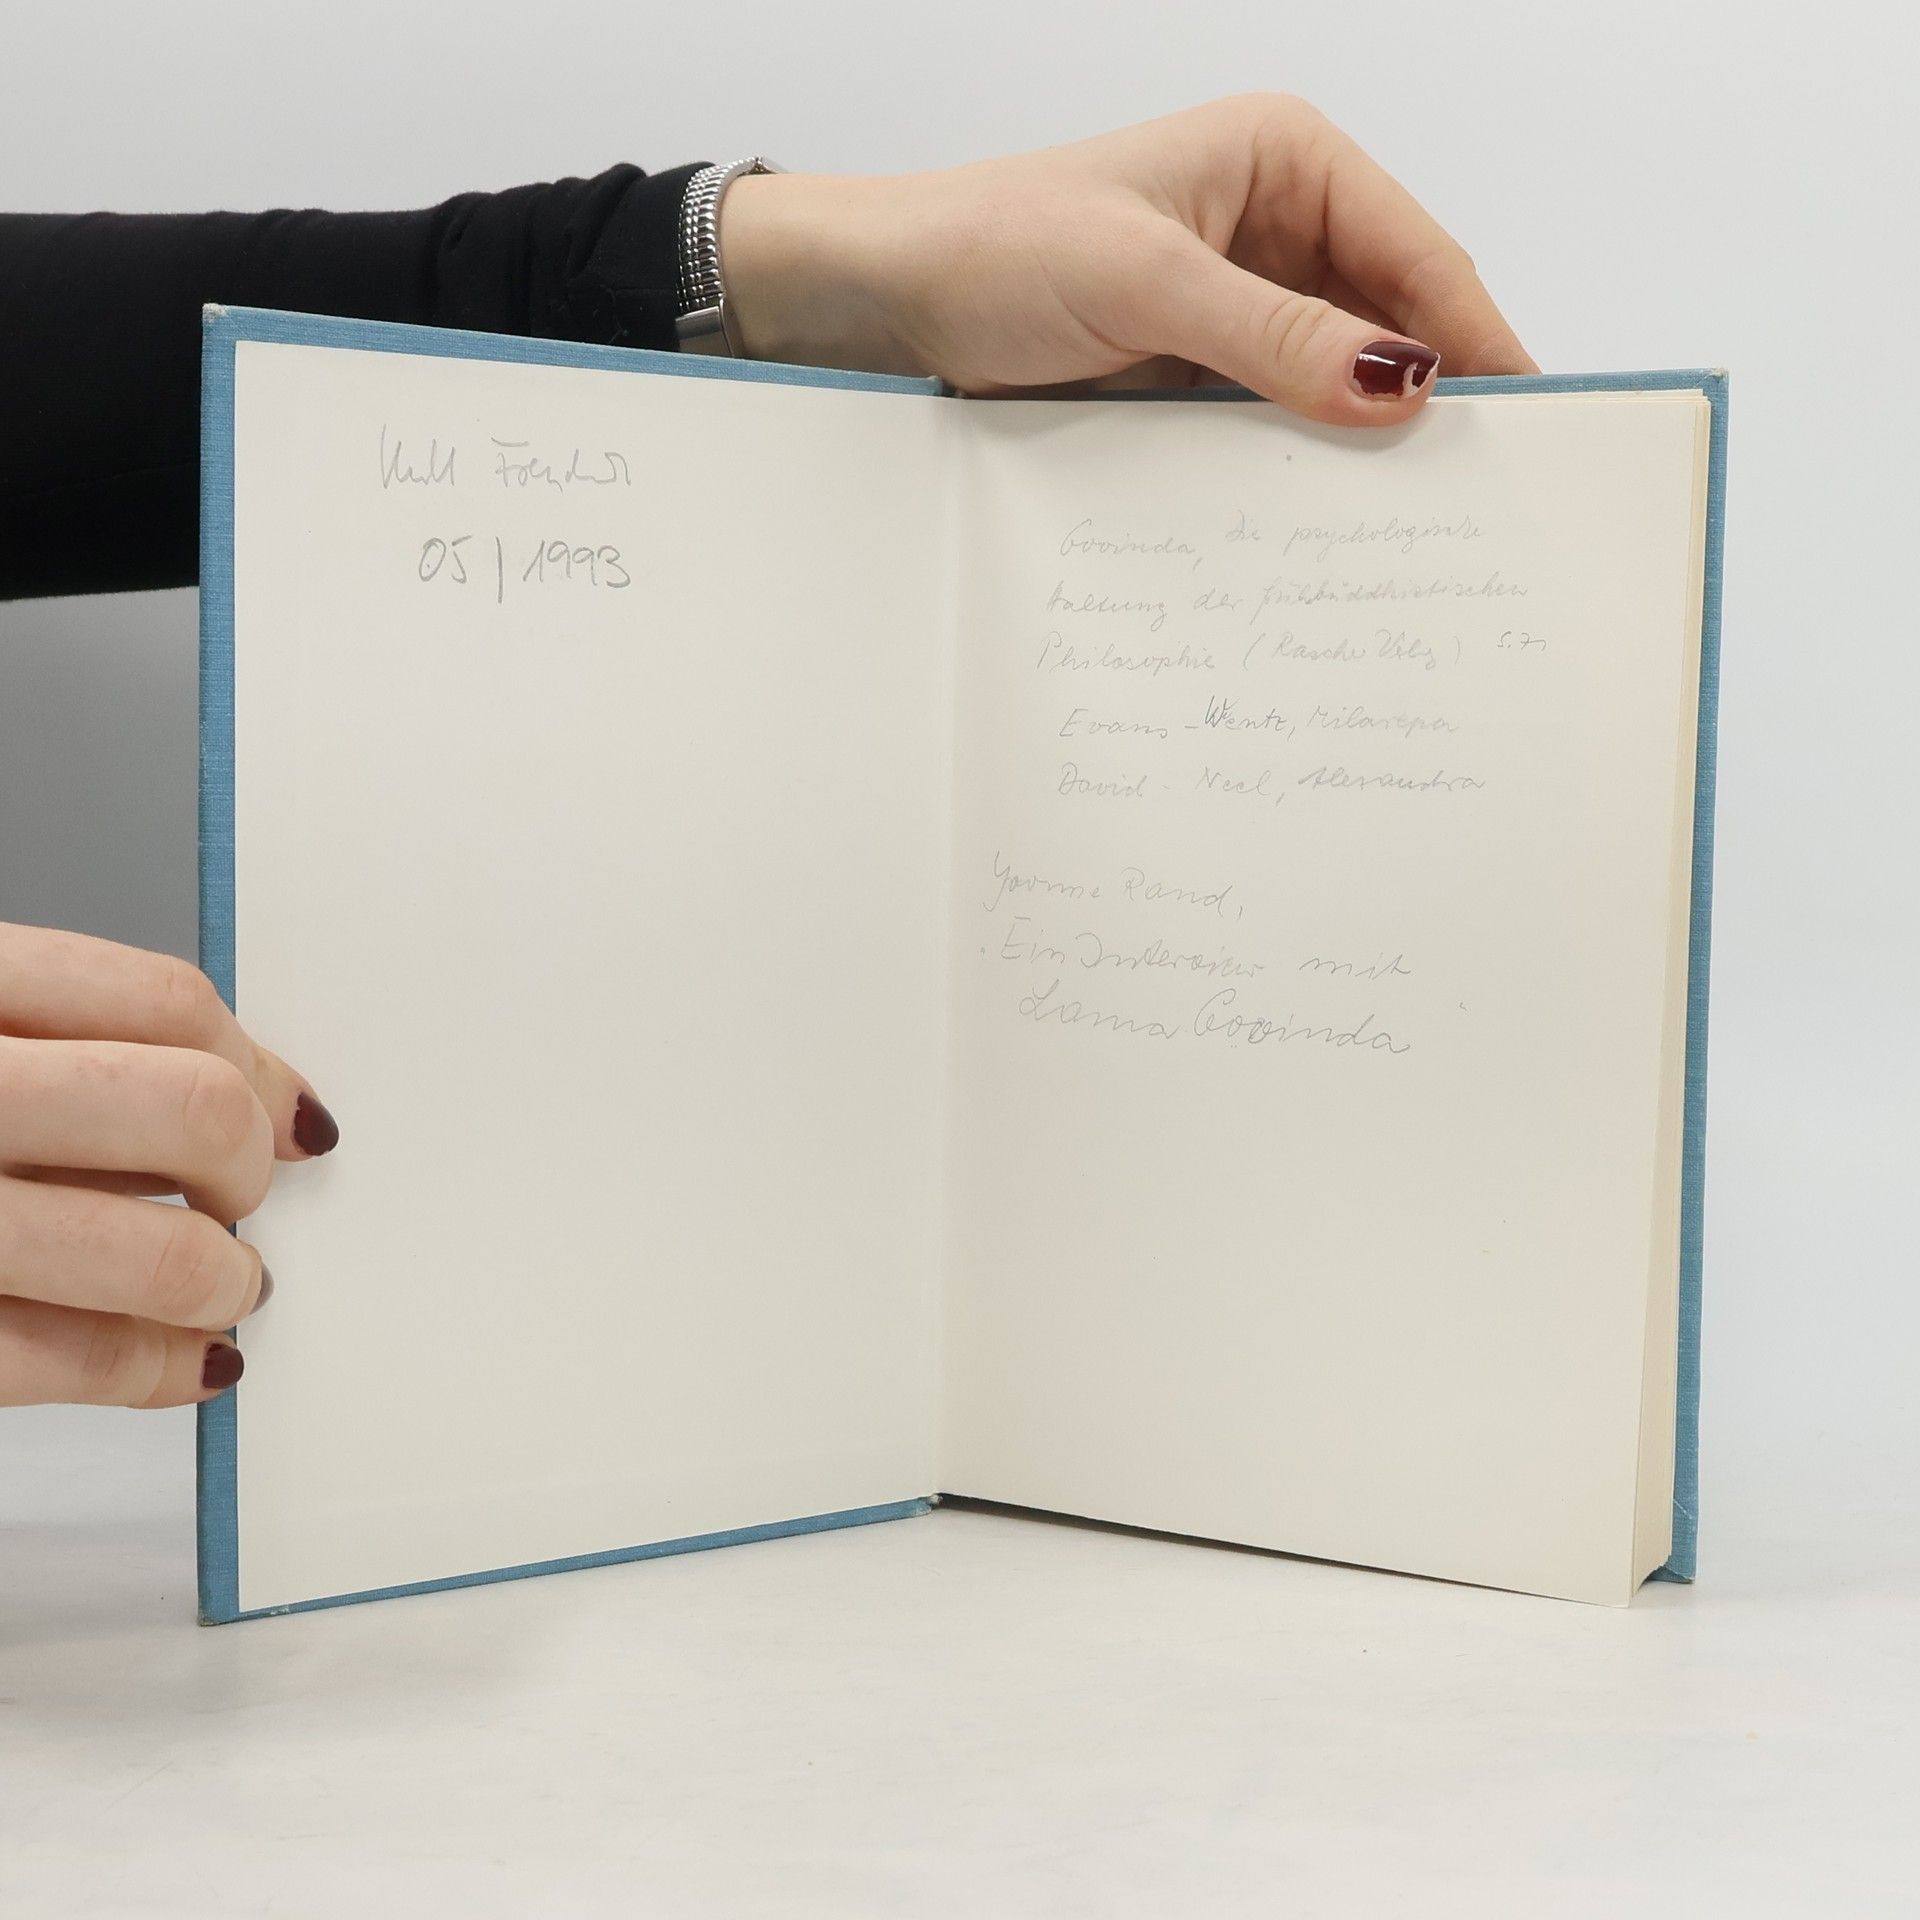 05 | 1993
Govinda, Die psychologische
Haltung der frühbuddhistischen
Philosophie (Rascher Verlag) S. 71
Evans-Wentz, Milarepa
David-Neel, Alexandra
Yvonne Rand,
"Ein Interview mit
Lama Govinda"